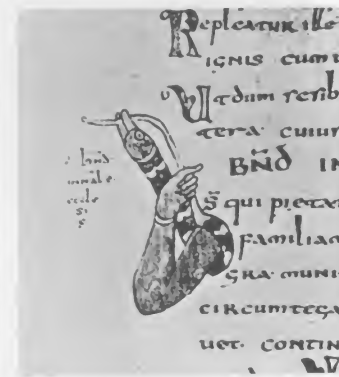 Repleatur ille
ignis cum
Ut dum scrib
tera cuius
BÑD IN
S̄ qui pietat
familiam
gra muni
circumtega
uet contin